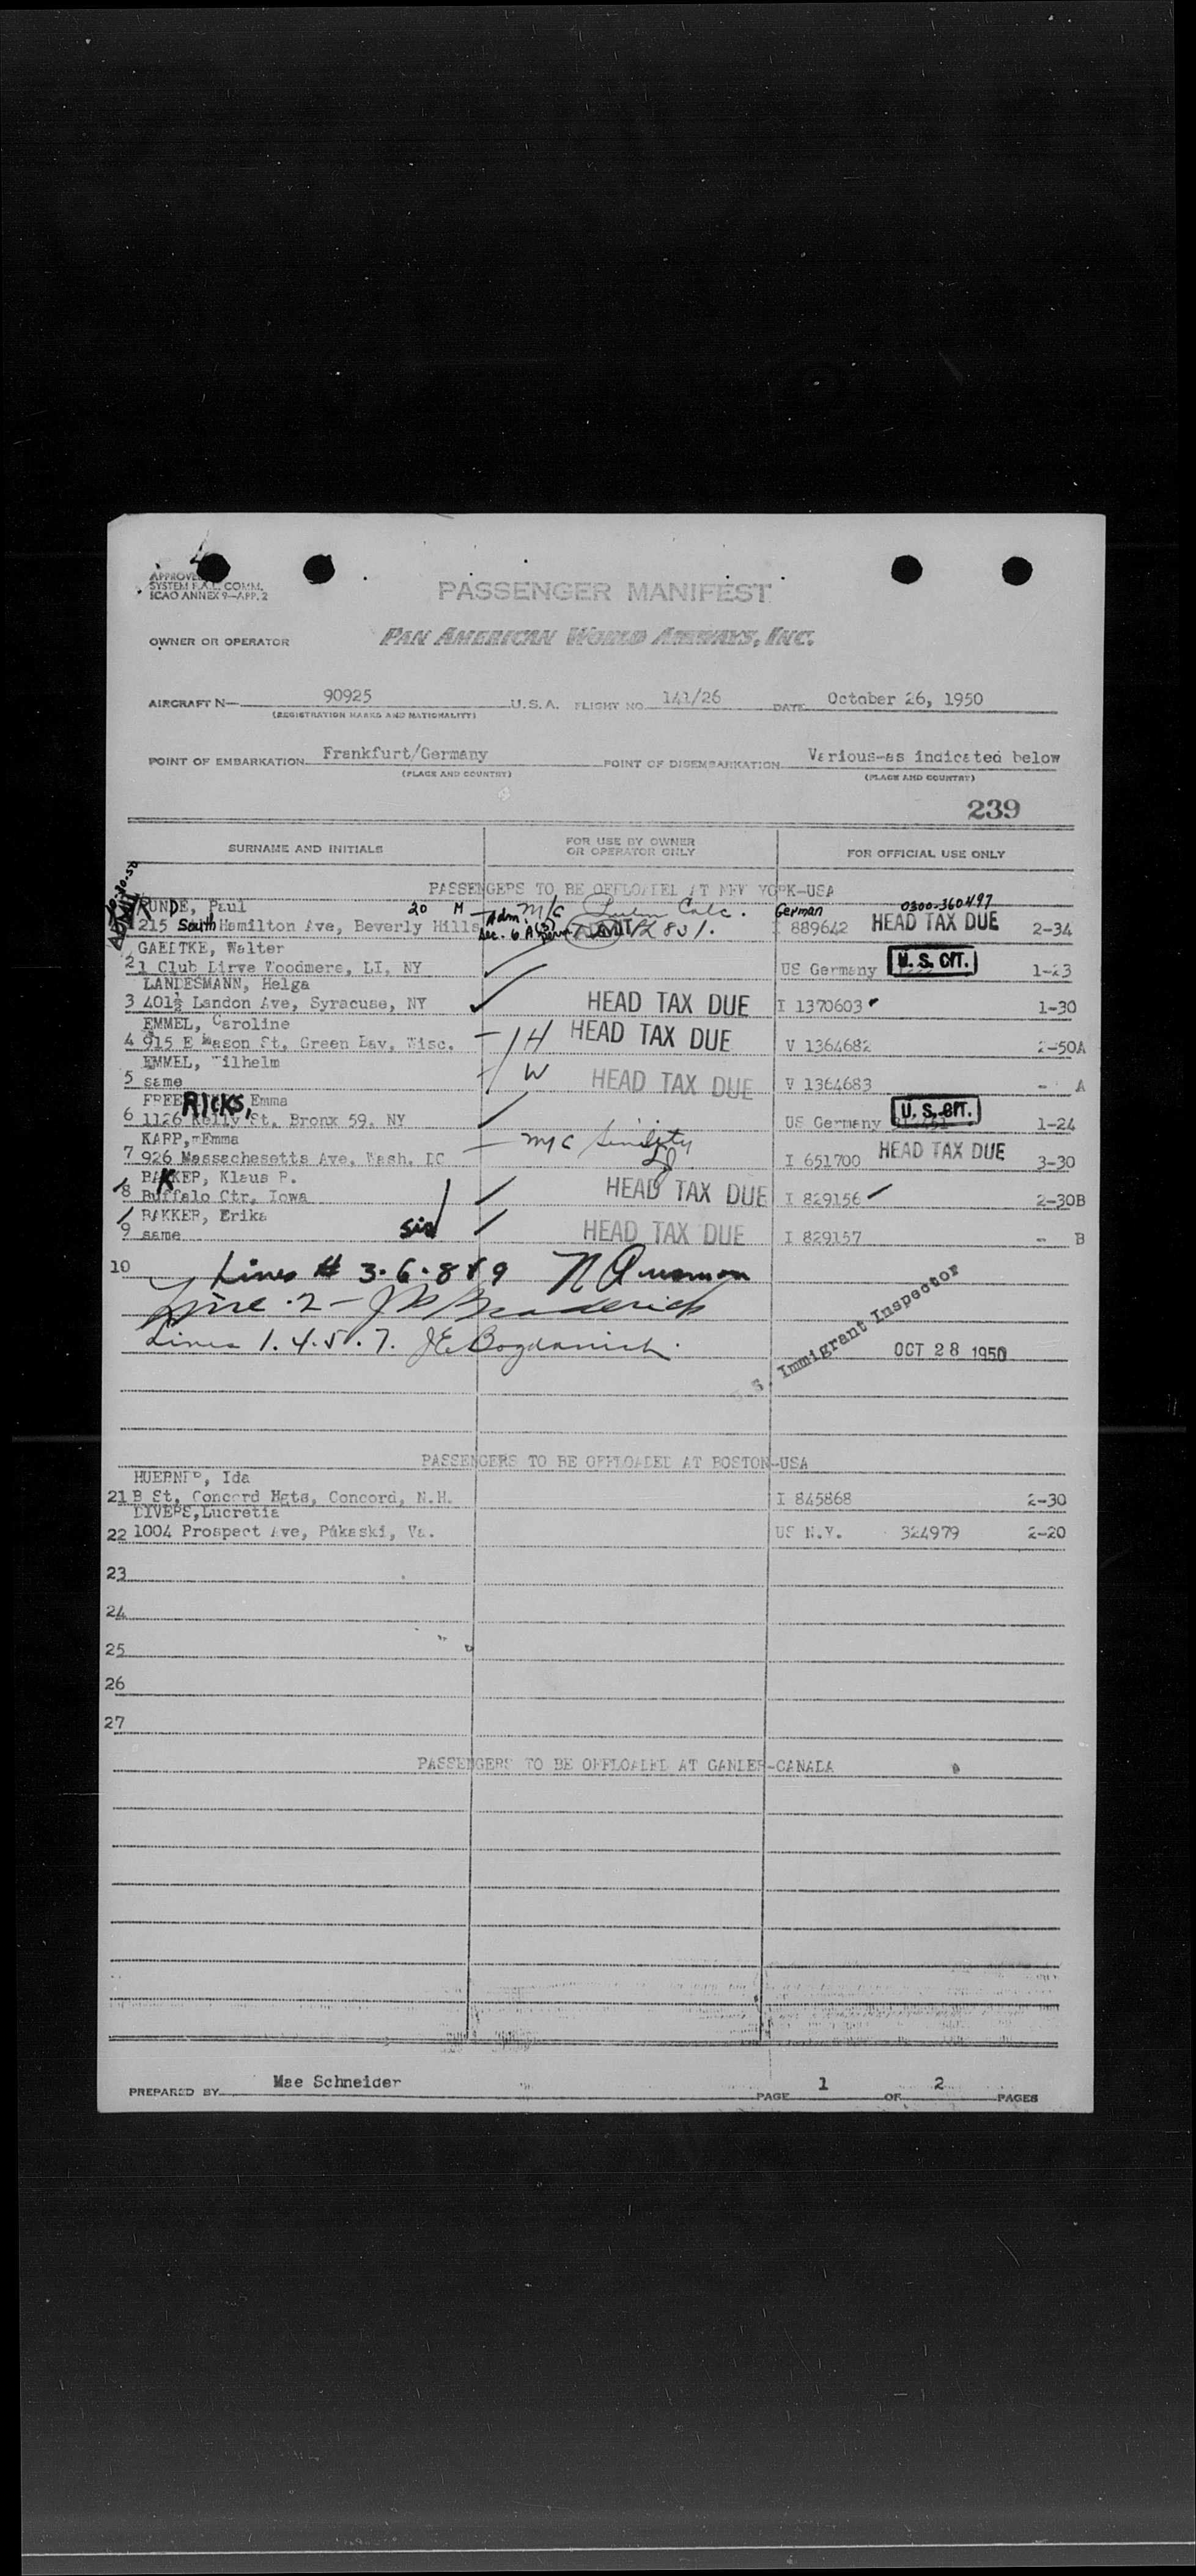 APPROVED
SYSTEM F.A.L. COMM.
ICAO ANNEX 9—APP. 2
PASSENGER MANIFEST
OWNER OR OPERATOR PAN AMERICAN WORLD AIRWAYS, INC.
AIRCRAFT N— 90925 U.S.A. FLIGHT NO. 141/26 DATE October 26, 1950
(REGISTRATION MARKS AND NATIONALITY)
POINT OF EMBARKATION Frankfurt/Germany POINT OF DISEMBARKATION Various-as indicated below
(PLACE AND COUNTRY) (PLACE AND COUNTRY)
239
SURNAME AND INITIALS FOR USE BY OWNER OR OPERATOR ONLY FOR OFFICIAL USE ONLY
PASSENGERS TO BE OFFLOADED AT NEW YORK-USA
KUNDE, Paul 20 M Adm. M/C German 0300-360497
215 South Hamilton Ave, Beverly Hills Sec. 6 I 889642 HEAD TAX DUE 2-34
GAEDTKE, Walter
2 1 Club Dirve Woodmere, LI, NY US Germany U. S. CIT. 1-23
LANDESMANN, Helga
3 401½ Landon Ave, Syracuse, NY HEAD TAX DUE I 1370603 1-30
EMMEL, Caroline
4 915 E Mason St, Green Bay, Wisc. H HEAD TAX DUE V 1364682 2-50A
EMMEL, Wilhelm
5 same W HEAD TAX DUE V 1364683 - A
FREE RICKS, Emma
6 1126 Kelly St, Bronx 59, NY US Germany U. S. CIT. 1-24
KARP, Emma
7 926 Massachesetts Ave, Wash. DC M/C I 651700 HEAD TAX DUE 3-30
BAKKER, Klaus P.
8 Buffalo Ctr, Iowa HEAD TAX DUE I 829156 2-30B
BAKKER, Erika
9 same sis HEAD TAX DUE I 829157 - B
10 Lines # 3.6.8&9
Line 2 - Broderick
Lines 1.4.5.7. J E Bogdanich.
U.S. Immigrant Inspector
OCT 28 1950
PASSENGERS TO BE OFFLOADED AT BOSTON-USA
HUEBNER, Ida
21 B St, Concord Hgts, Concord, N.H. I 845868 2-30
DIVERS, Lucretia
22 1004 Prospect Ave, Pukaski, Va. US N.Y. 324979 2-20
23
24
25
26
27
PASSENGERS TO BE OFFLOADED AT GANDER-CANADA
PREPARED BY Mae Schneider PAGE 1 OF 2 PAGES